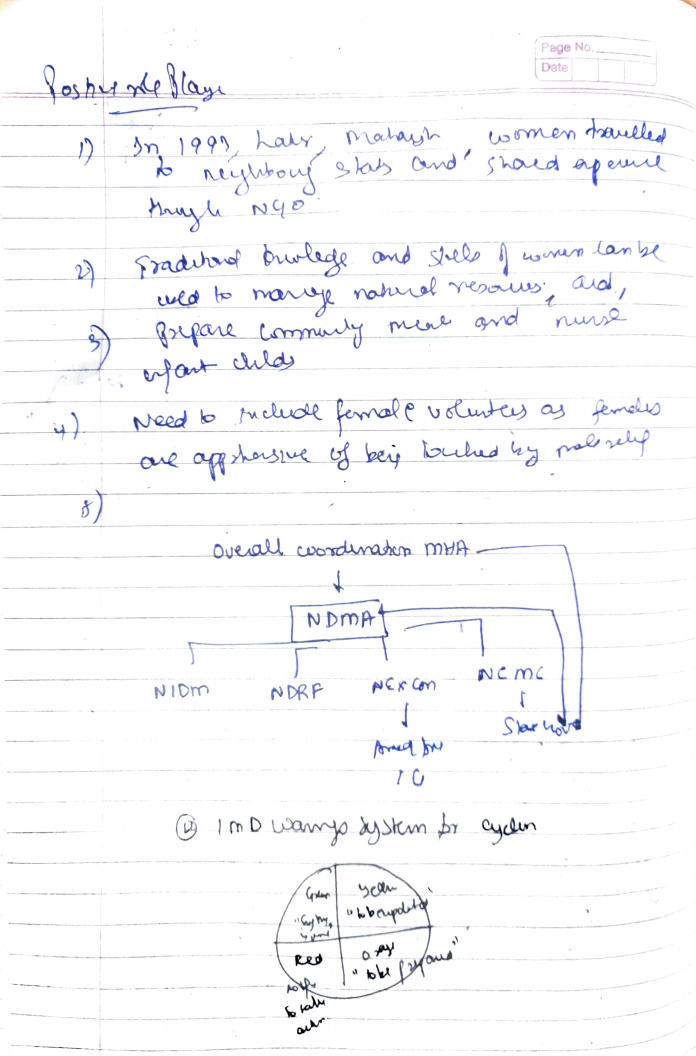 Page No.
Date
Positive role Playe
1) In 1993, Latur, women travelled
to neighbouring states and shared
through NGO
2) Traditional knowledge and skills of women can be
used to manage natural resources, and,
3) prepare community meal and nurse
infant childs
4) Need to include female volunteers as females
are of being touched by male
5)
Overall coordination MHA
NDMA
NIDM NDRF NEx Com NCMC
State Gov
Armed
IMD System for
Green Yellow
"to be updated"
Red
"to be prepared"
to take